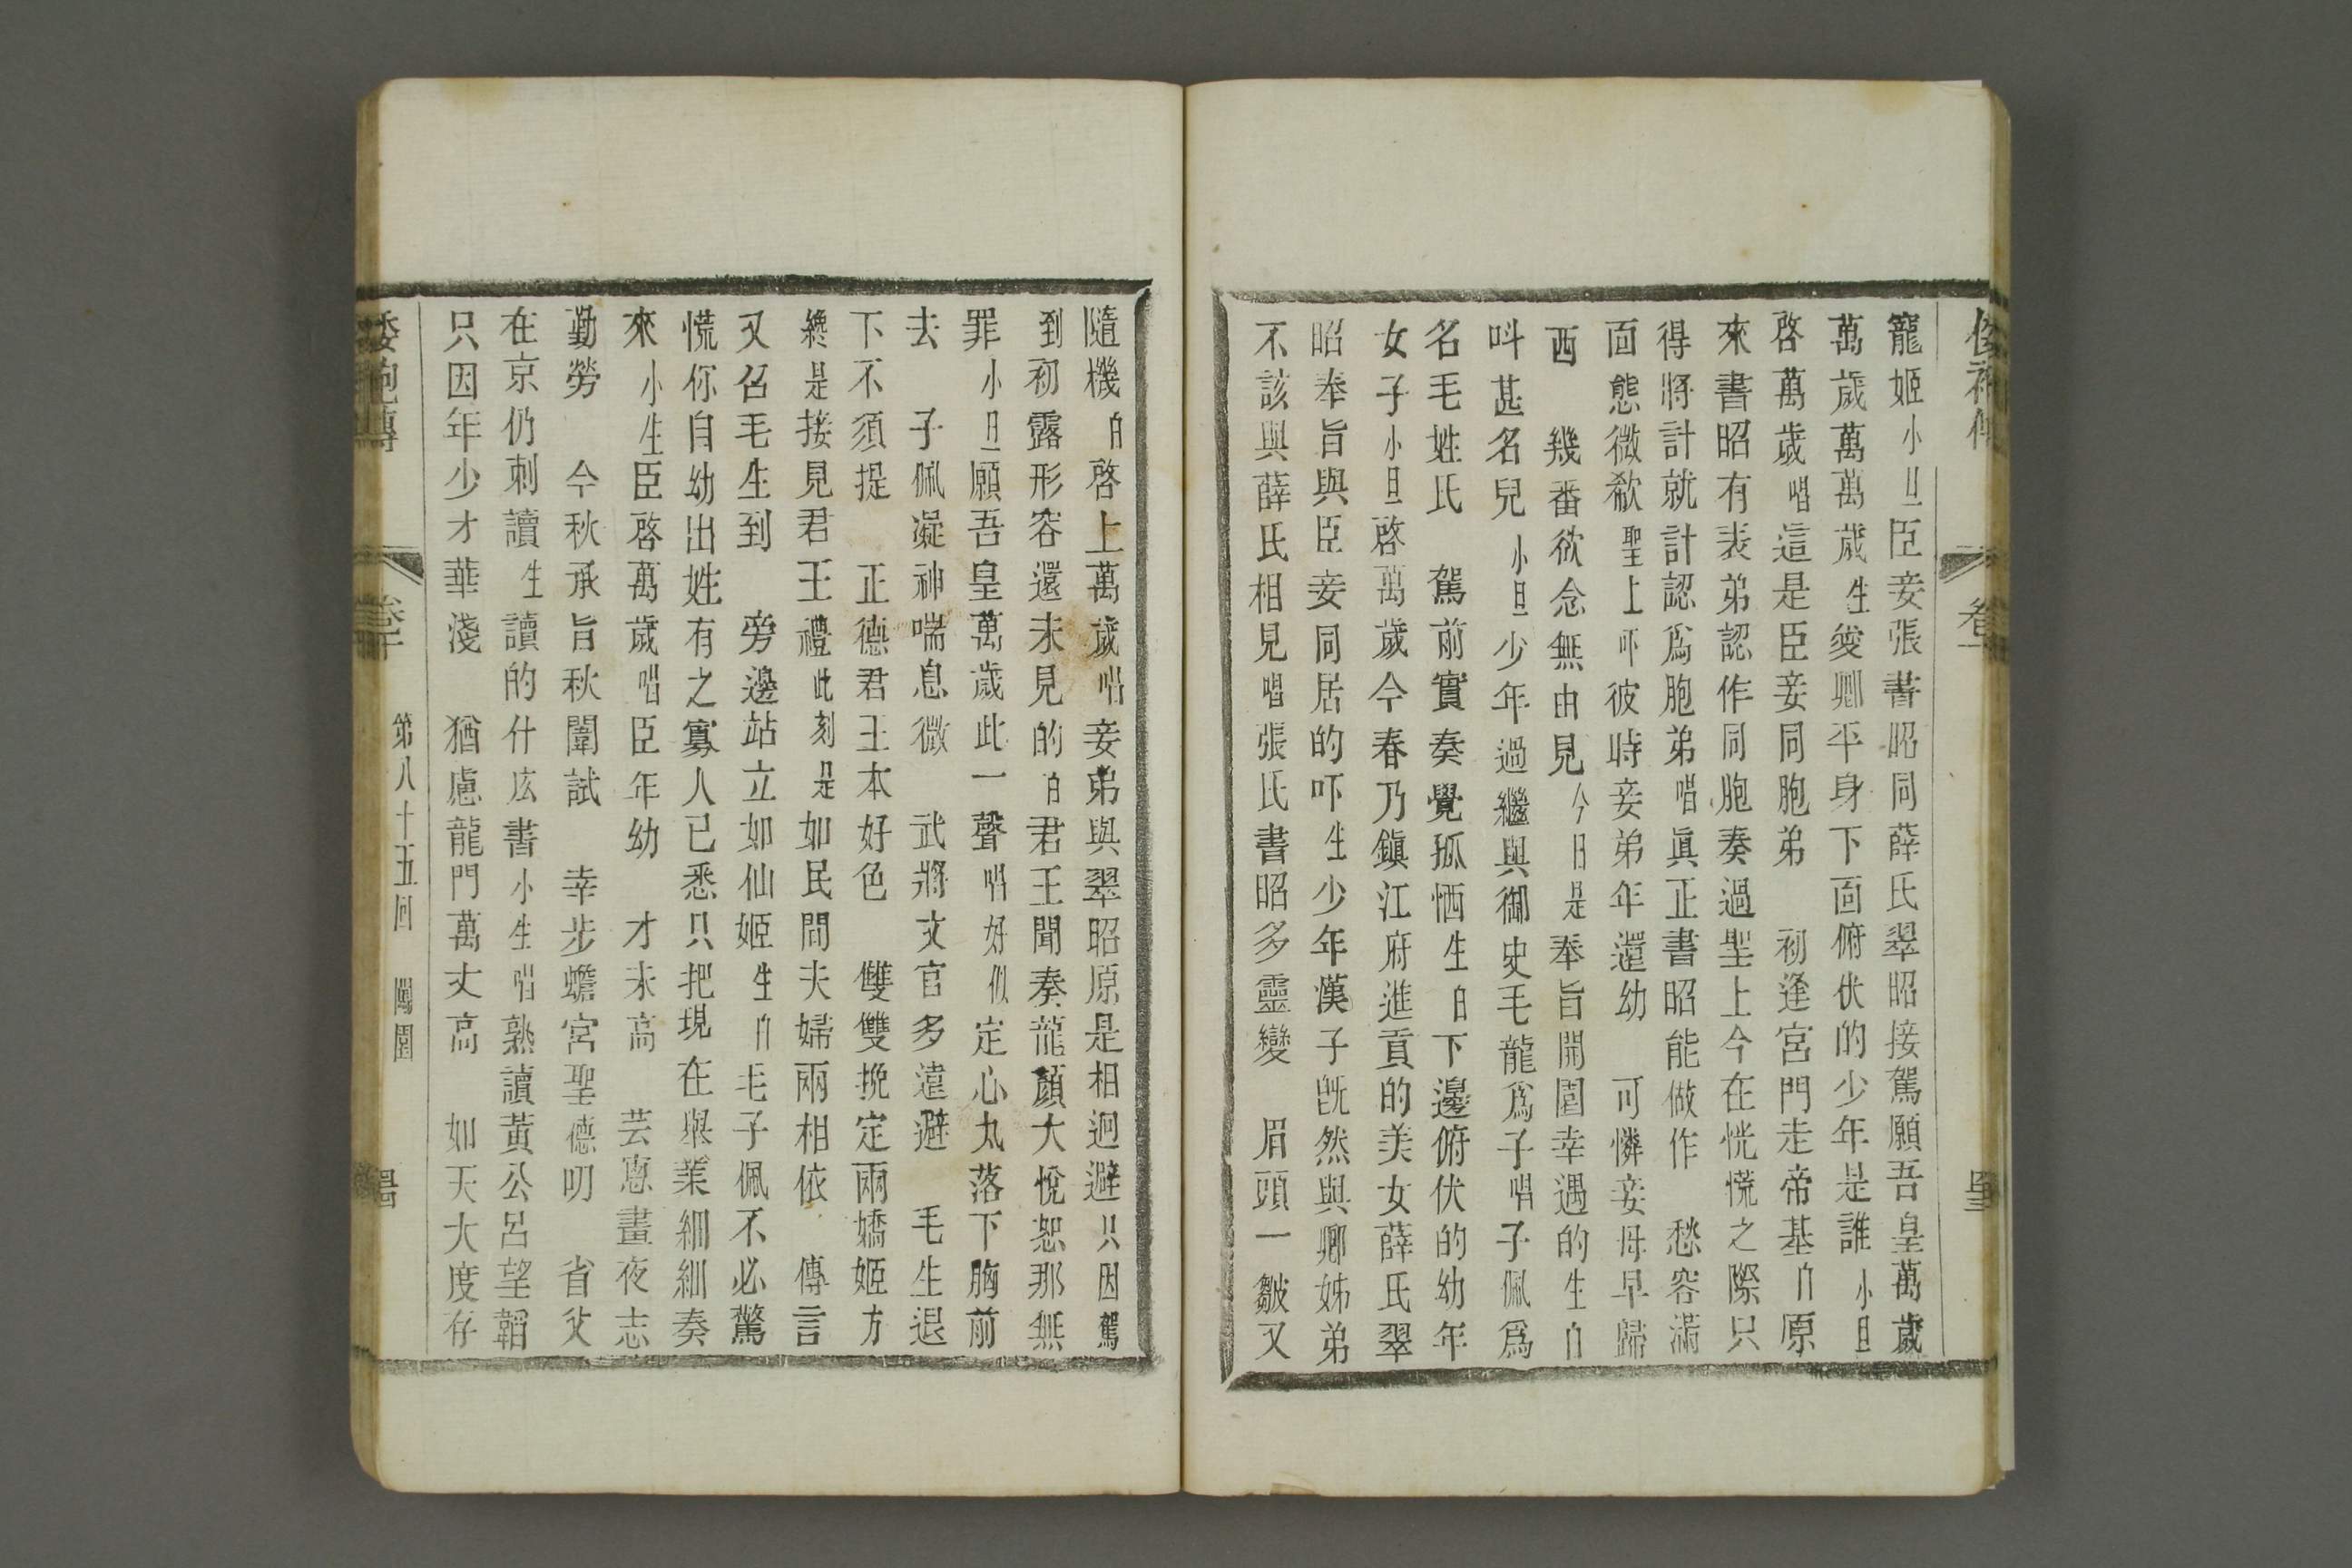 寵姬小旦臣妾張書昭同薛氏翠昭接駕願吾皇萬歲
萬歲萬萬歲生爱卿平身下面俯伏的少年是誰小旦
啓萬歲唱這是臣妾同胞弟　初逢宮門走帝基白原
來書昭有表弟認作同胞奏過聖上今在恍慌之際只
得將計就計認爲胞弟唱眞正書昭能做作　愁容滿
面態微欷聖上吓彼時妾弟年還幼　可憐妾母早歸
西　幾番欲念無由見今日是奉旨開圍幸遇的生白
呌甚名兒小旦少年過繼與御史毛龍爲子唱子佩爲
名毛姓氏　駕前實奏覺孤恓生白下邊俯伏的幼年
女子小旦啓萬歲今春乃鎮江府進貢的美女薛氏翠
昭奉旨與臣妾同居的吓生少年漢子旣然與卿姊弟
不該與薛氏相見唱張氏書昭多靈變　眉頭一皺又
隨機白啓上萬歲唱妾弟與翠昭原是相迴避只因駕
到初露形容還未見的白君王聞奏龍顏大悅恕那無
罪小旦願吾皇萬歲此一聲唱好似定心丸落下胸前
去　子佩凝神喘息微　武將文官多遠避　毛生退
下不須提　正德君王本好色　雙雙挽定兩嬌姬方
纔是接見君王禮此刻是如民間夫婦兩相依　傳言
又召毛生到　旁邊站立如仙姬生白毛子佩不必驚
慌你自幼出姓有之寡人已悉只把現在舉業細細奏
來小生臣啓萬歲唱臣年幼　才未高　芸窻晝夜志
勤勞　今秋承旨秋闈試　幸步蟾宮聖德叨　省父
在京仍刺讀生讀的什庅書小生唱熟讀黃公呂望韜
只因年少才華淺　猶慮龍門萬丈高　如天大度存
倭袍傳　卷十　第八十五回　闖圍